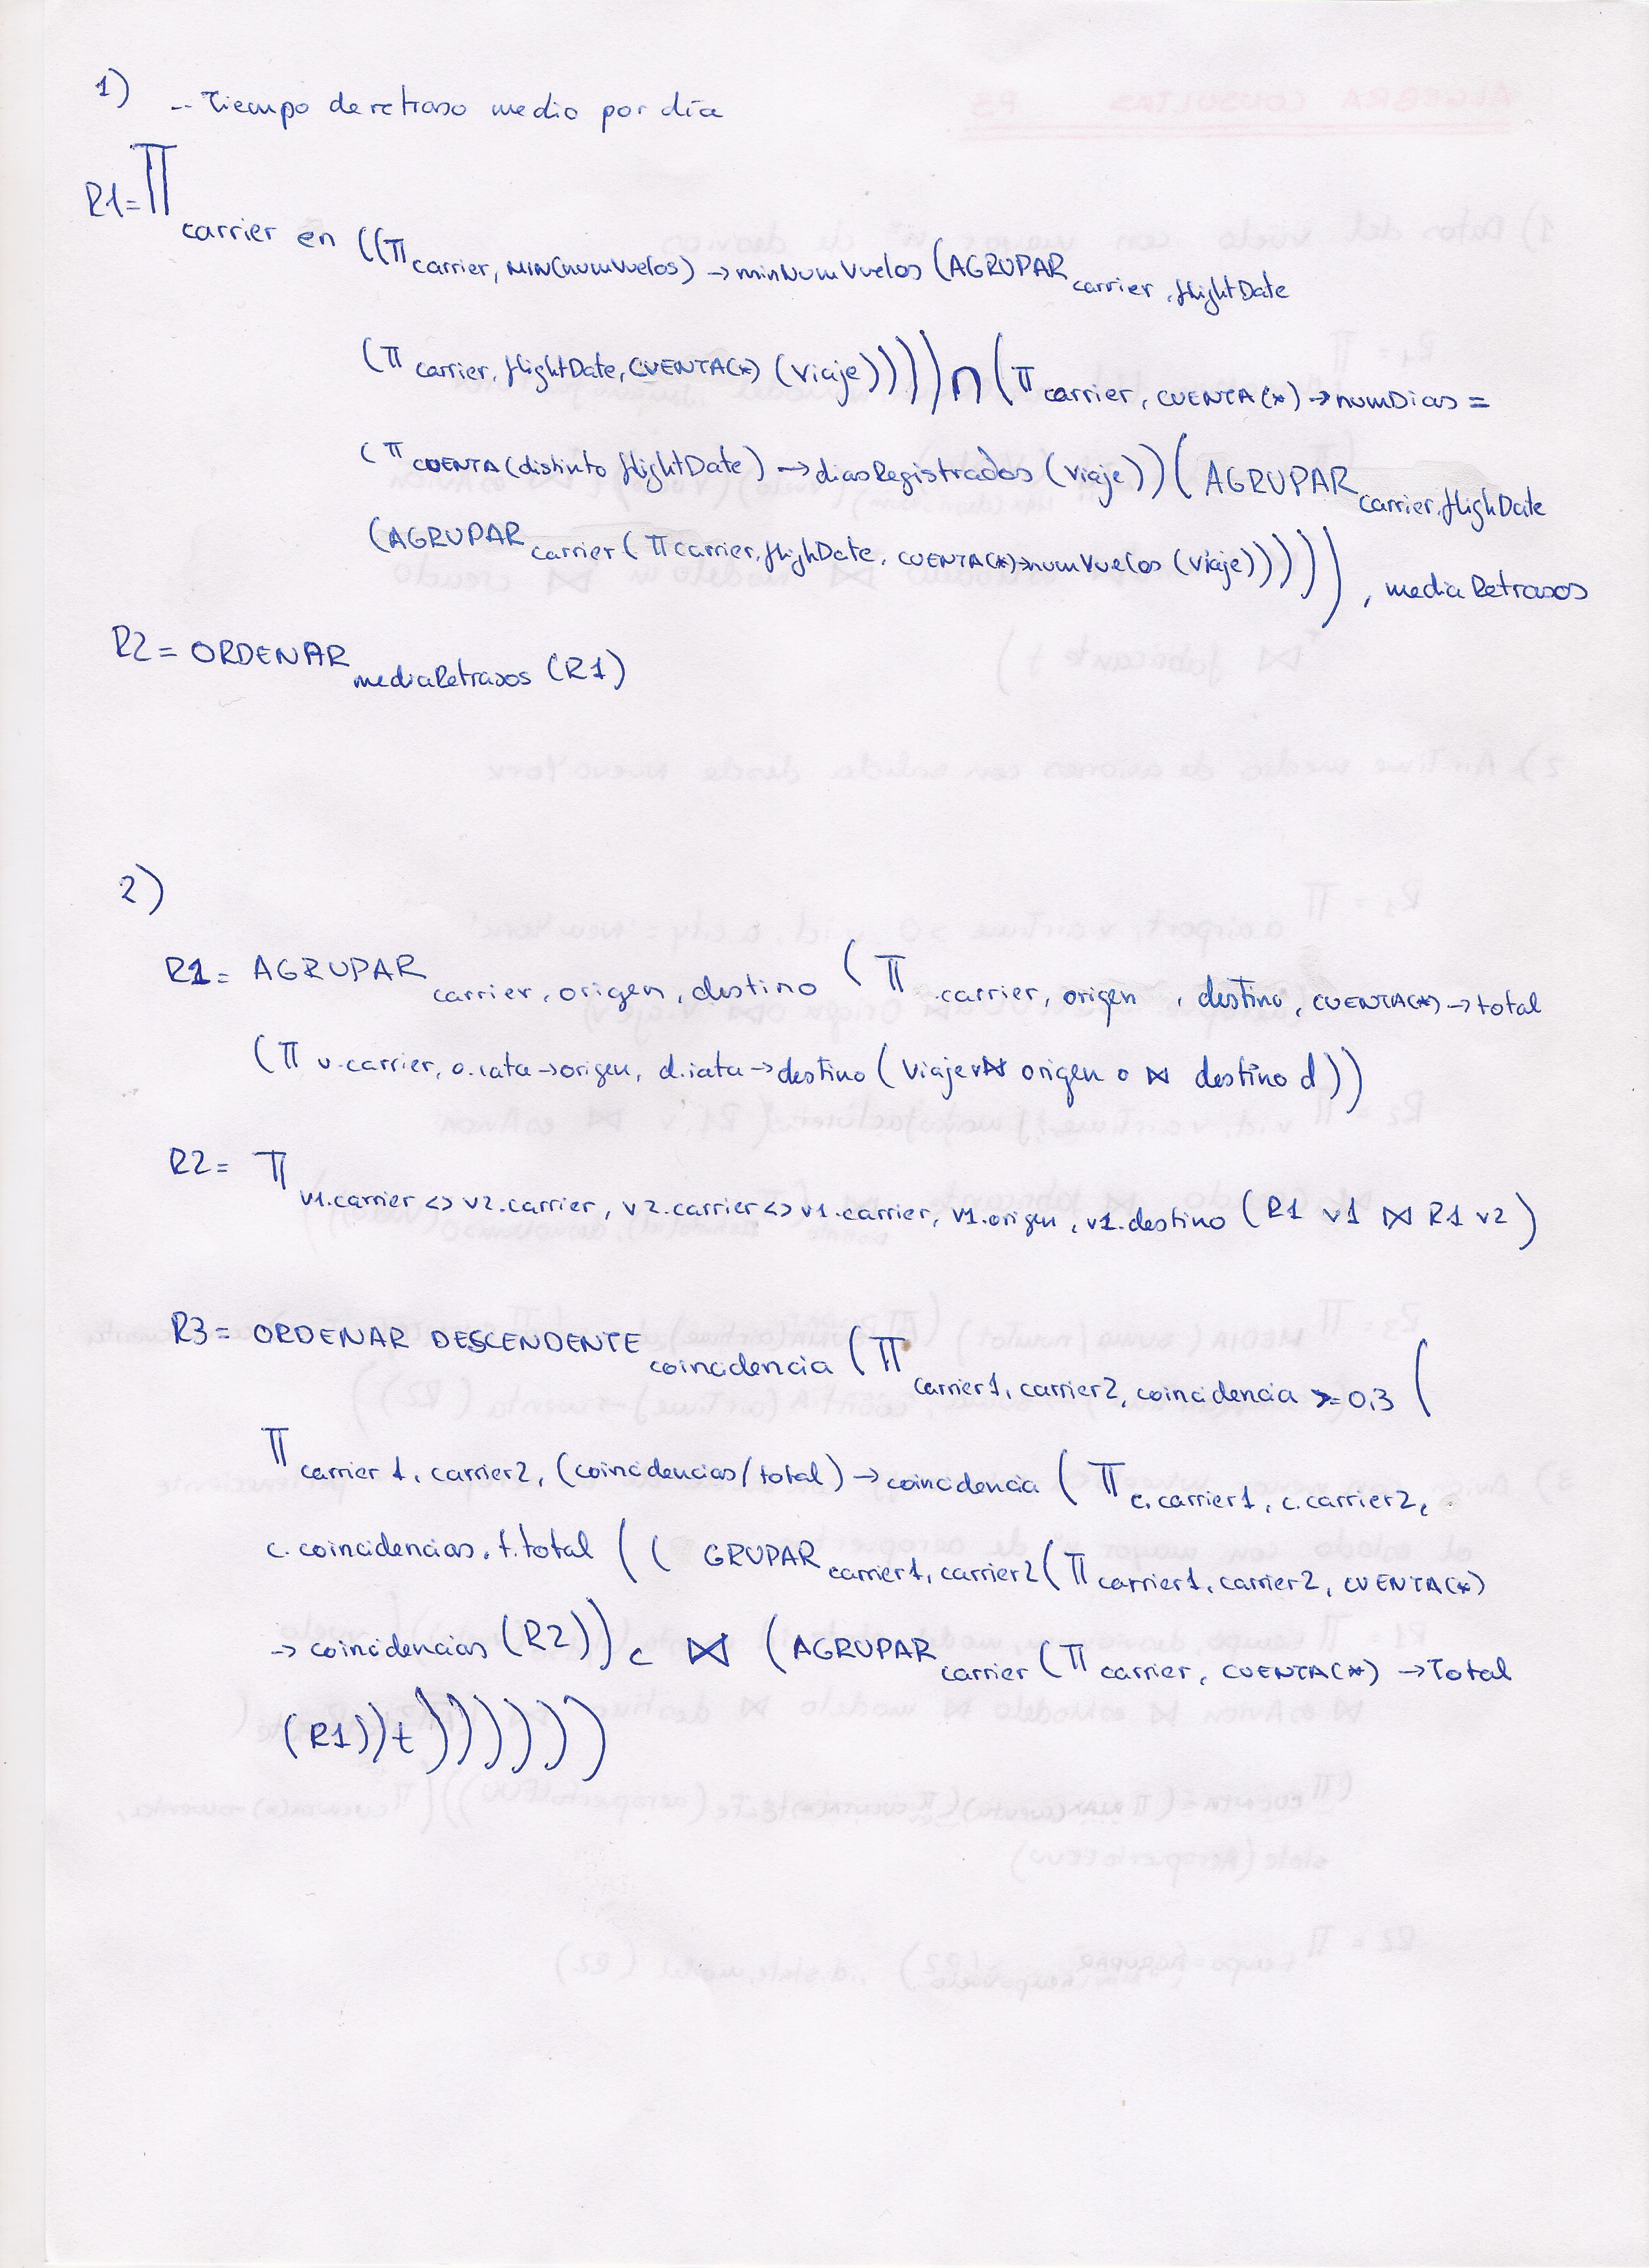 1) -- Tiempo de retraso medio por día
R1 = π carrier en ((π carrier, MIN(numVuelos) → minNumVuelos (AGRUPAR carrier, flightDate
(π carrier, flightDate, CUENTA(*) (viaje)))) ∩ (π carrier, CUENTA(*) → numDias =
(π CUENTA(distinto flightDate) → diasRegistrados (viaje)) (AGRUPAR carrier, flighDate
(AGRUPAR carrier (π carrier, flighDate, CUENTA(*) → numVuelos (viaje)))))), mediaRetrasos
R2 = ORDENAR mediaRetrasos (R1)
2)
R1 = AGRUPAR carrier, origen, destino (π carrier, origen, destino, CUENTA(*) → total
(π v.carrier, o.iata → origen, d.iata → destino (viaje v ⋈ origen o ⋈ destino d))
R2 = π v1.carrier <> v2.carrier, v2.carrier <> v1.carrier, v1.origen, v1.destino (R1 v1 ⋈ R1 v2)
R3 = ORDENAR DESCENDENTE coincidencia (π carrier1, carrier2, coincidencia >= 0,3 (
π carrier 1, carrier2, (coincidencias/total) → coincidencia (π c.carrier1, c.carrier2,
c.coincidencias, t.total (( GRUPAR carrier1, carrier2 (π carrier1, carrier2, CUENTA(*)
→ coincidencias (R2)) c ⋈ (AGRUPAR carrier (π carrier, CUENTA(*) → Total
(R1)) t))))))